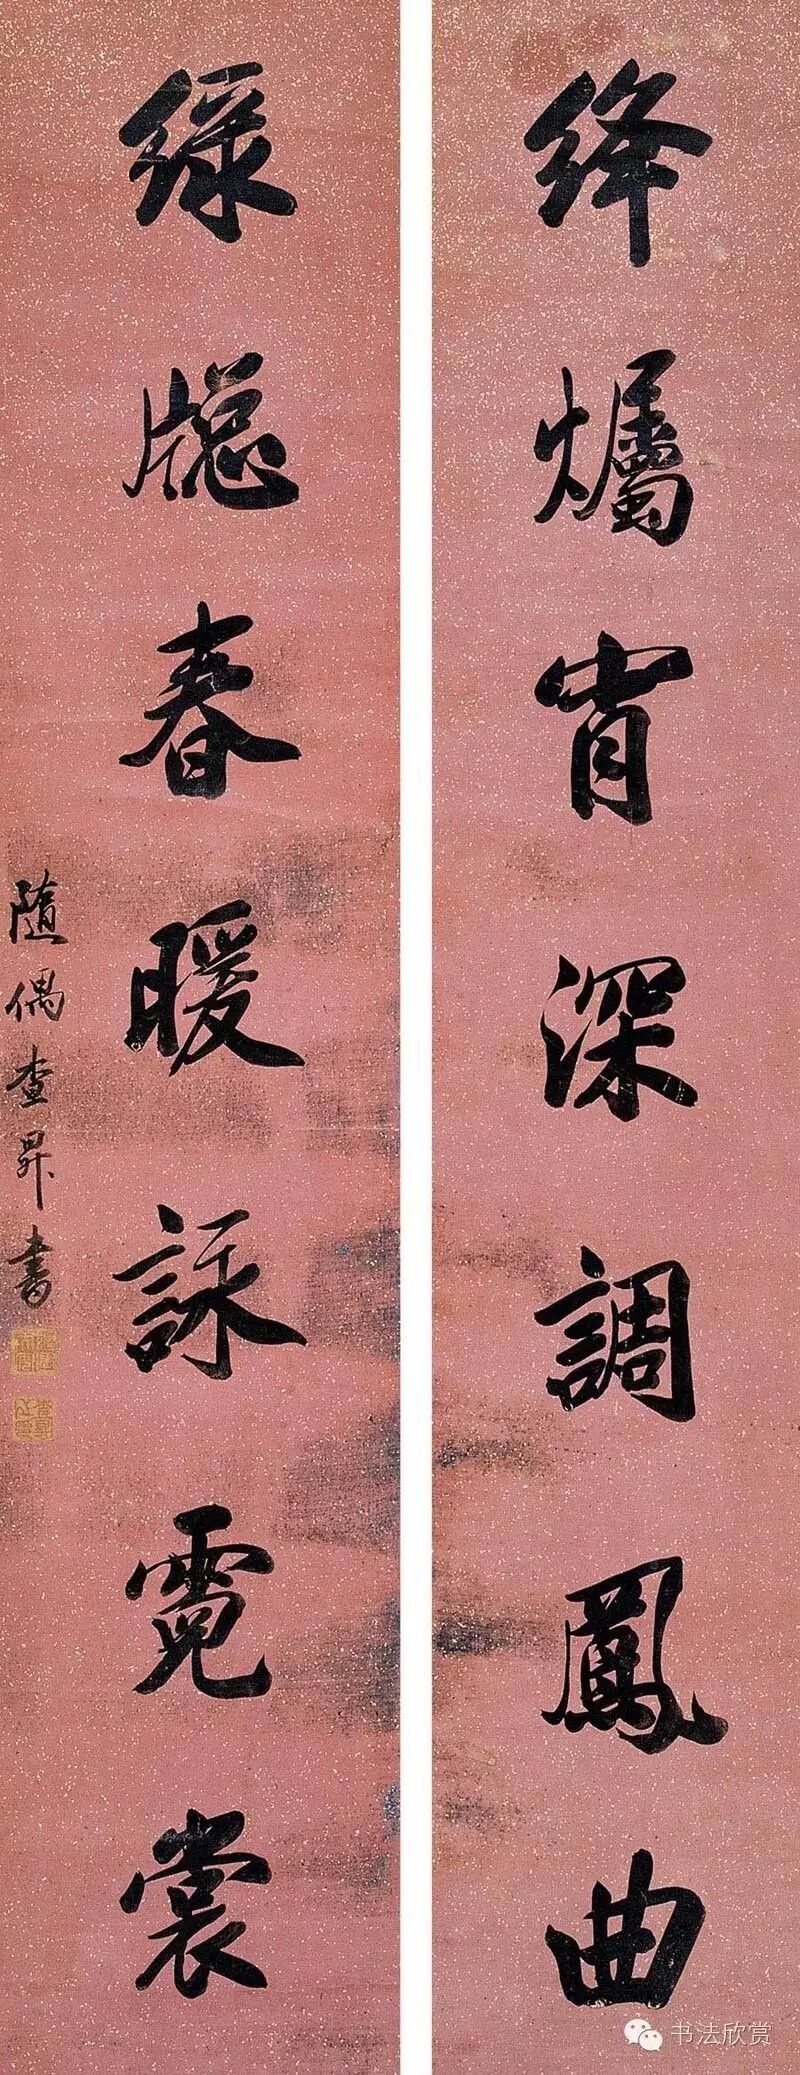 絳爥宵深調鳳曲
綠牕春暖詠霓裳
隨偶查昇書
书法欣赏